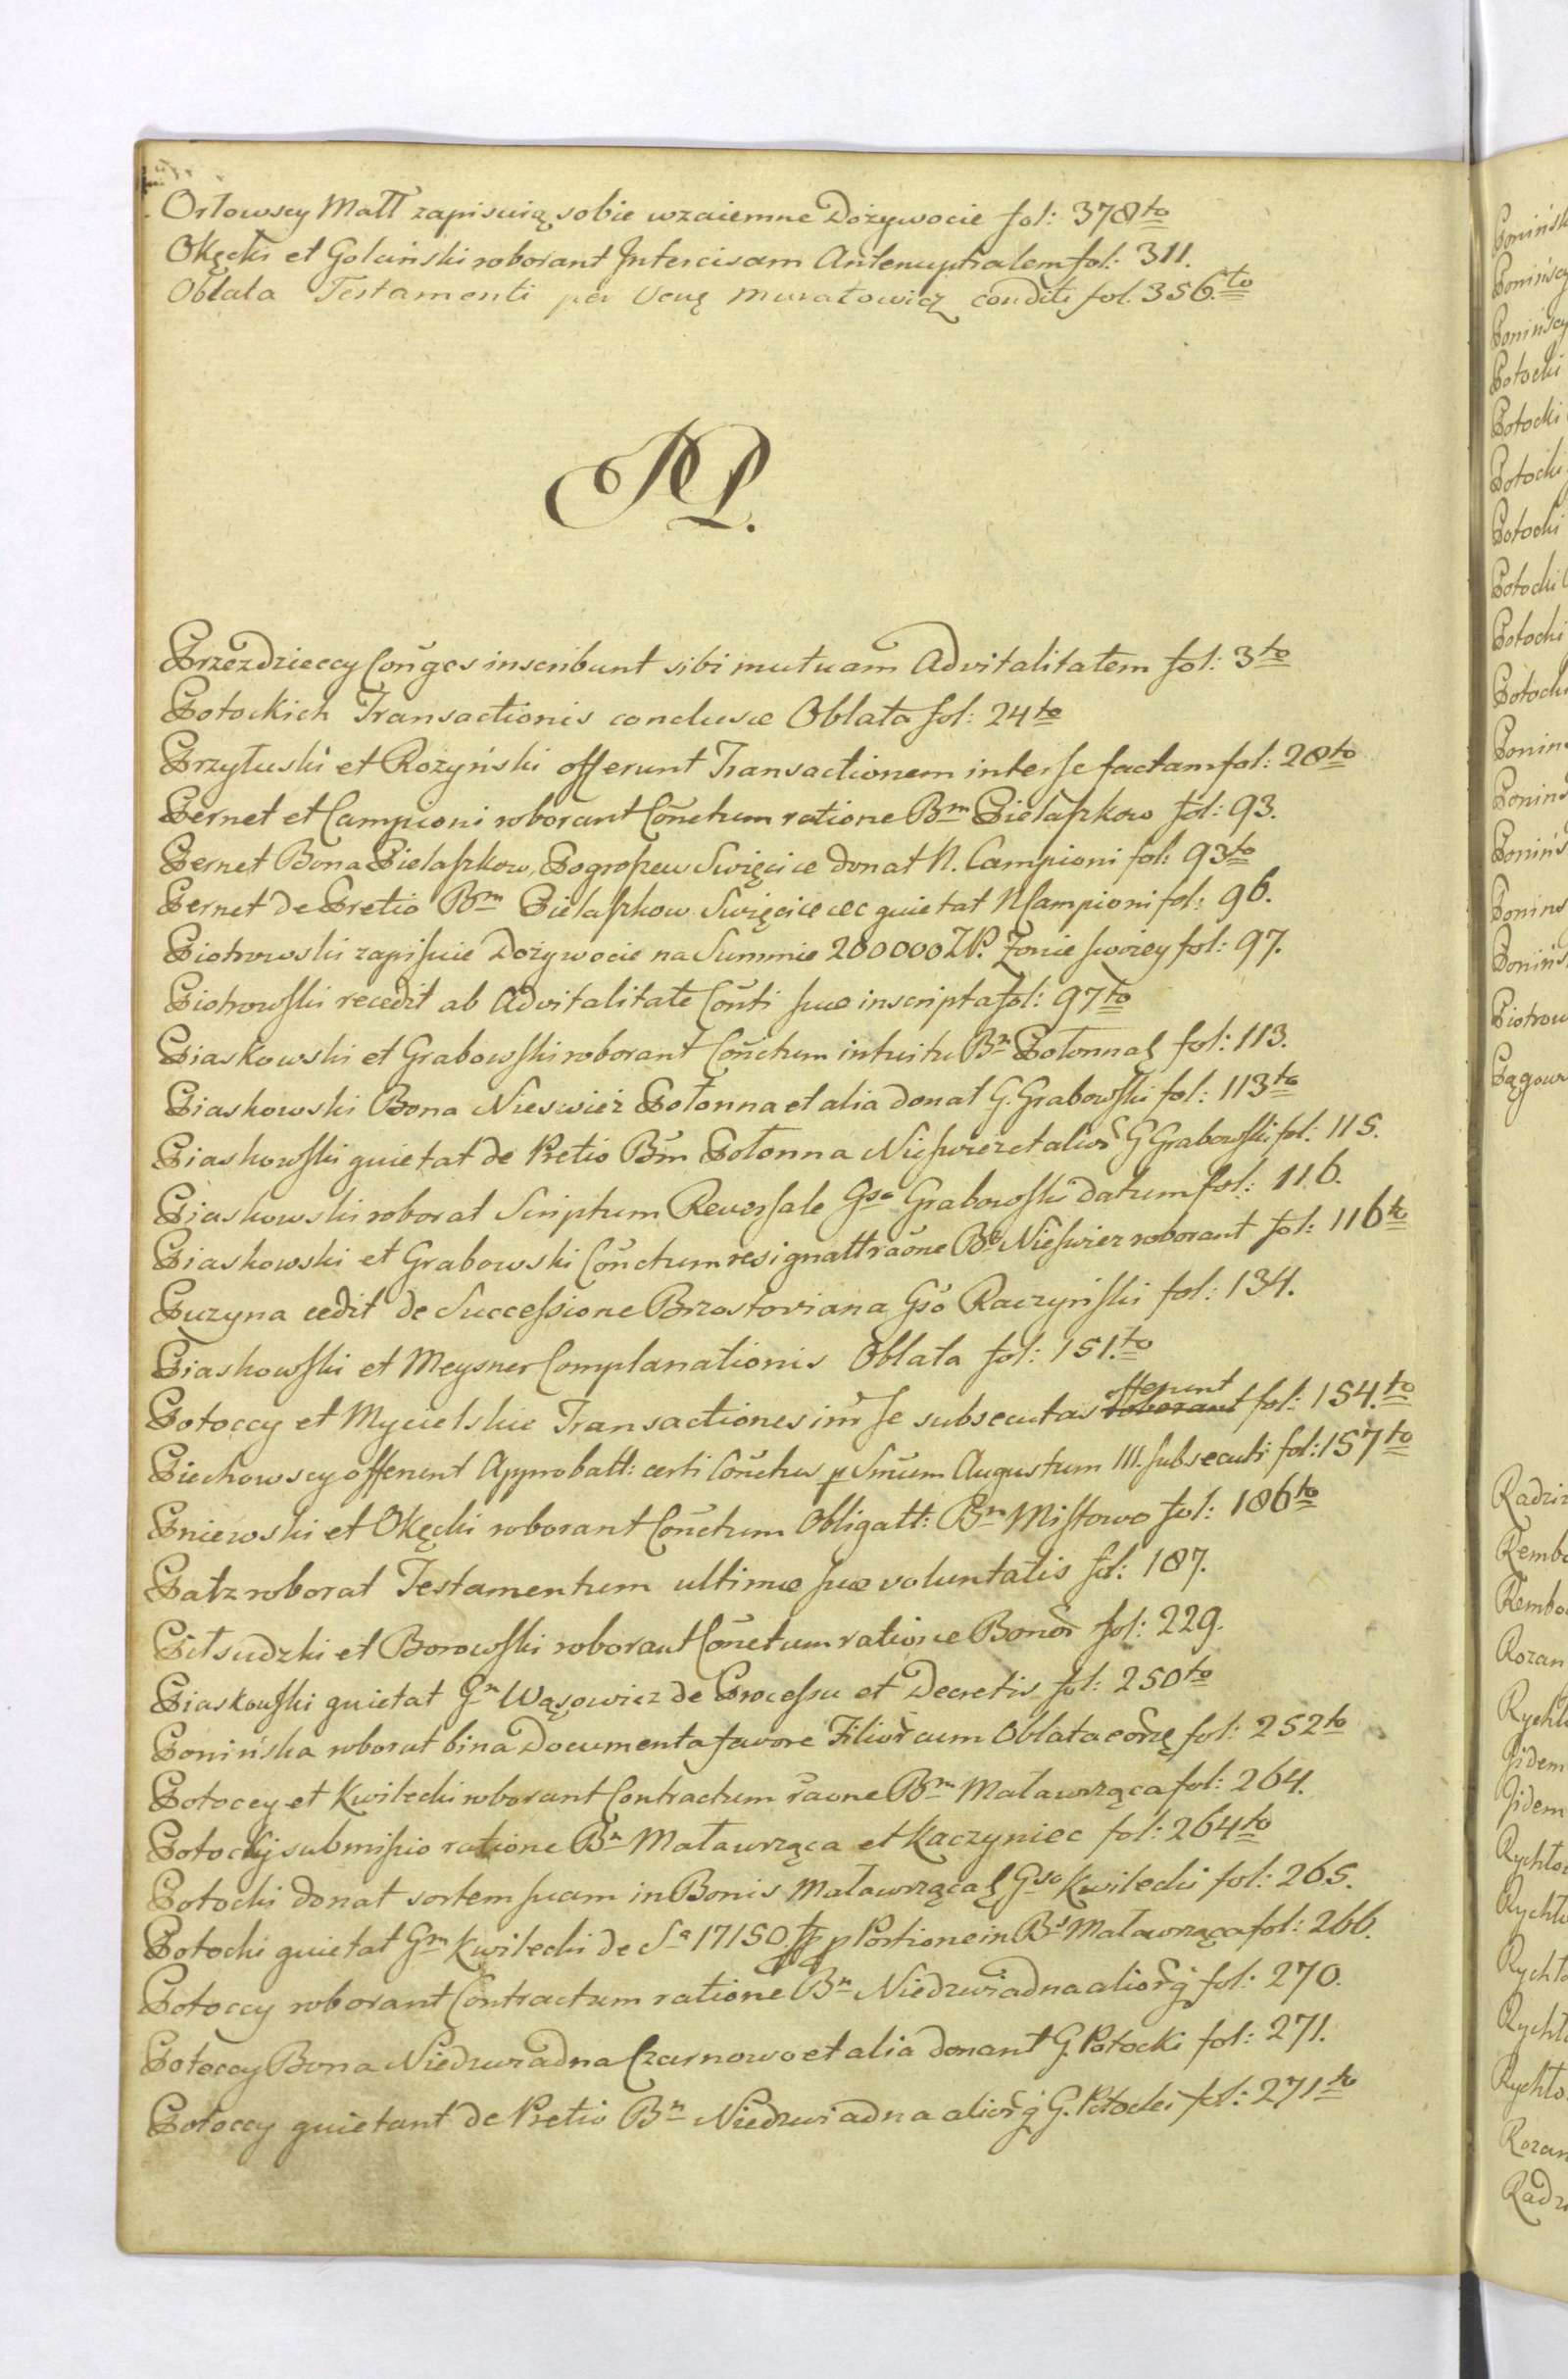 Orłowscy Małł zapisuią sobie wzaiemne Dożywocie fol: 378to
Okęcki et Goluński roborant Intercisam Antenuptialem fol: 311.
Oblata Testamenti per Ucnę Muratowicz conditi fol. 356.to
P.
Przezdzieccy Conğes inscribunt sibi mutuam Advitalitatem fol: 3to
Potockich Transactionis conclusæ Oblata fol: 24to
Przyłuski et Rożyński offerunt Transactionem inter se factam fol: 28to
Pernet et Campioni roborant Cončtum ratione Bm Pielaszkow fol: 93.
Pernet Bona Pielaszkow, Pogroszew Swięcice donat N. Campioni fol: 93to
Pernet de Pretio Bm Pielaszkow Swięcice &c quietat N Campioni fol: 96.
Piotrowski zapisuie Dożywocie na Summie 200000 ZP. Żonie swoiey fol: 97.
Piotrowski recedit ab Advitalitate Conti suæ inscripta fol: 97to
Piaskowski et Grabowski roborant Cončtum intuitu Bn Połonna & fol: 113.
Piaskowski Bona Nieswież Połonna et alia donat G. Grabowski fol: 113to
Piaskowski quietat de Pretio Bm Połonna Nieswiez et alior̃ G Grabowski fol: 115.
Piaskowski roborat Scriptum Reversale Gso Grabowski datum fol: 116.
Piaskowski et Grabowski Cončtum resignatt raõne Br Nieswiez roborant fol: 116to
Puzyna cedit de Successione Brzostoviana Gso Raczyński fol: 134.
Piaskowski et Meysner Complanationis Oblata fol: 151.to
Potoccy et Mycielskie Transactiones inr̃ se subsecutas roborant offerunt fol: 154.to
Piechowscy offerunt Approbatt: certi Cončtus p Smum Augustum III. subsecuti fol: 157to
Pniewski et Okęcki roborant Cončtum Obligatt: Bn Mistowo fol: 186to
Patz roborat Testamentum ultimæ suæ voluntatis fol: 187.
Piłsudzki et Borowski roborant Cončtum ratione Bonor̃ fol: 229.
Piaskowski quietat Gn Wąsowicz de Processu et Decretis fol: 250to
Ponińska roborat bina Documenta favore Filior̃ cum Oblata eor̃ę fol: 252to
Potoccy et Kwilecki roborant Contractum raõne Bm Maławrząca fol: 264.
Potockij submissio ratione Bn Maławrząca et Kaczyniec fol: 264to
Potocki donat sortem suam in Bonis Maławrząca & Gso Kwilecki fol: 265.
Potocki quietat Gm Kwilecki de Sa 17150 ff p Portione in Bs Maławrząca fol: 266.
Potoccy roborant Contractum ratione Bn Niedzwiadna alior̃q fol: 270.
Potoccy Bona Niedzwiadna Czarnowo et alia donant G. Potocki fol: 271.
Potoccy quietant de Pretio Bn Niedzwiadna alior̃q G. Potocki fol: 271to